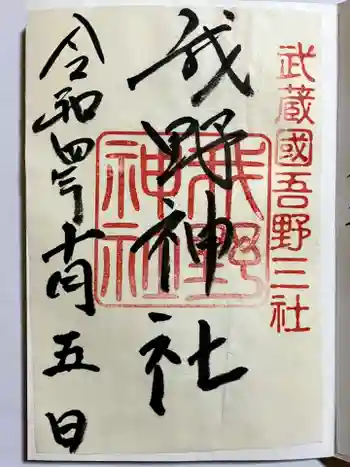 武蔵國吾野三社
我野神社
我野
神社
令和四年十月五日